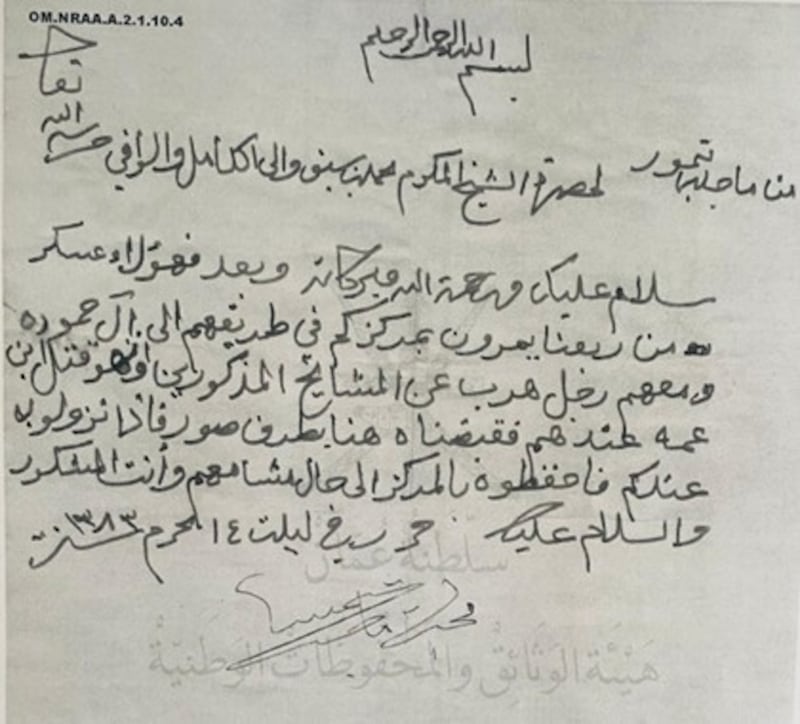 OM.NRAA.A.2.1.10.4
بسم الله الرحمن الرحيم
من ماجد بن تيمور لحضرة الشيخ المكرم محمد بن سيف والي الكامل والوافي حرسه الله تعالى
سلام عليكم ورحمة الله وبركاته وبعد فهؤلاء عسكر
من ربعنا يمرون بمركزكم في طريقهم الى آل حموده
ومعهم رجل هرب عن المشايخ المذكورين وهو قتل ابن
عمه عندهم فقبضناه هنا بطرف صور فأذا نزلوا به
عندكم فاحفظوه بالمركز الى حال مشاهم وأنت المشكور
والسلام عليك حرر يخ ليلت ١٤ المحرم سنة ١٣٨٣
سلطنة عمان
هيئة الوثائق والمحفوظات الوطنية